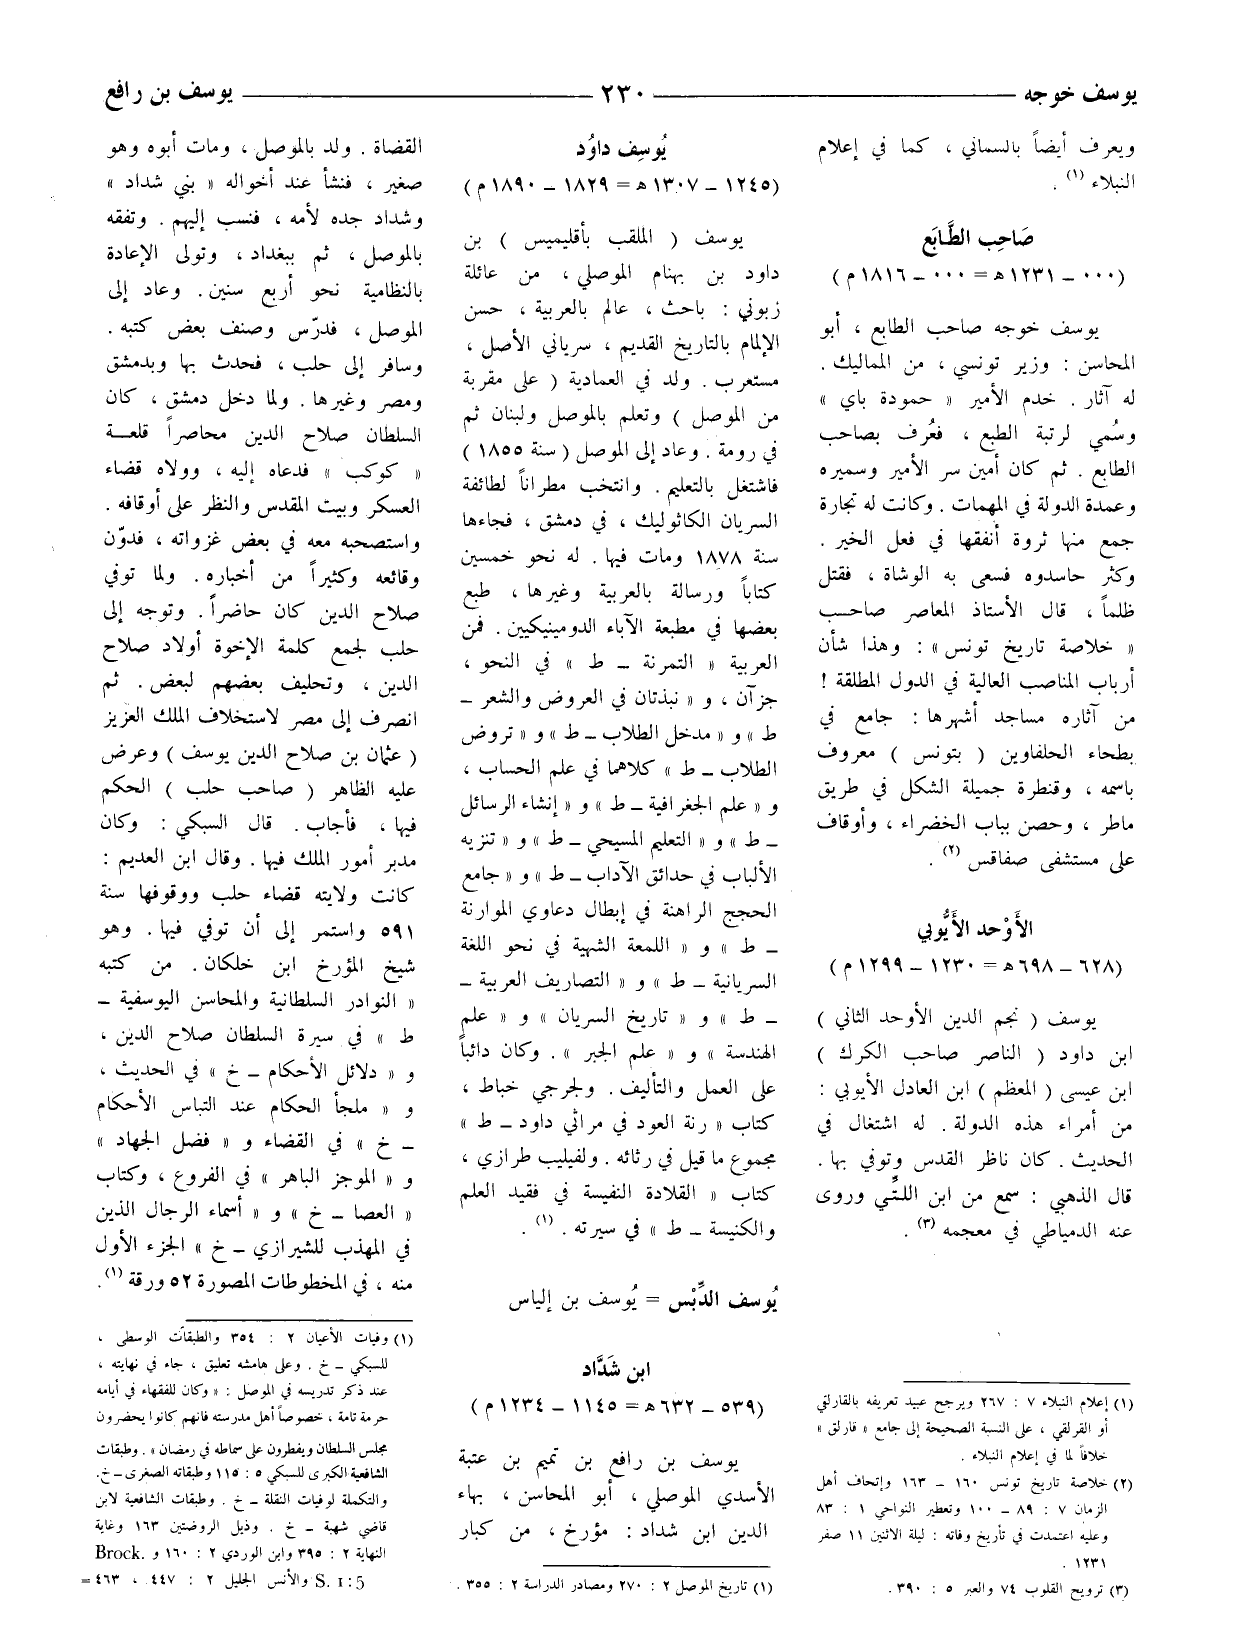 يوسف خوجه ــــــ ٢٣٠ ــــــ يوسف بن رافع
ويعرف أيضاً بالسماني ، كما في إعلام
النبلاء (١) .
صَاحِب الطَّابَع
(٠٠٠ ــ ١٢٣١ هـ = ٠٠٠ ــ ١٨١٦ م)
يوسف خوجه صاحب الطابع ، أبو
المحاسن : وزير تونسي ، من المماليك .
له آثار . خدم الأمير « حمودة باي »
وسُمي لرتبة الطبع ، فعُرف بصاحب
الطابع . ثم كان أمين سر الأمير وسميره
وعمدة الدولة في المهمات . وكانت له تجارة
جمع منها ثروة أنفقها في فعل الخير .
وكثر حاسدوه فسعى به الوشاة ، فقتل
ظلماً ، قال الأستاذ المعاصر صاحب
« خلاصة تاريخ تونس » : وهذا شأن
أرباب المناصب العالية في الدول المطلقة !
من آثاره مساجد أشهرها : جامع في
بطحاء الحلفاوين ( بتونس ) معروف
باسمه ، وقنطرة جميلة الشكل في طريق
ماطر ، وحصن بباب الخضراء ، وأوقاف
على مستشفى صفاقس (٢) .
الأَوْحد الأَيُّوبي
(٦٢٨ ــ ٦٩٨ هـ = ١٢٣٠ ــ ١٢٩٩ م)
يوسف ( نجم الدين الأوحد الثاني )
ابن داود ( الناصر صاحب الكرك )
ابن عيسى ( المعظم ) ابن العادل الأيوبي :
من أمراء هذه الدولة . له اشتغال في
الحديث . كان ناظر القدس وتوفي بها .
قال الذهبي : سمع من ابن اللتّي وروى
عنه الدمياطي في معجمه (٣) .
(١) إعلام النبلاء ٧ : ٢٦٧ ويرجح عبيد تعريفه بالقارلقي
أو القرلقي ، على النسبة الصحيحة إلى جامع « قارلق »
خلافاً لما في إعلام النبلاء .
(٢) خلاصة تاريخ تونس ١٦٠ ــ ١٦٣ وإتحاف أهل
الزمان ٧ : ٨٩ ــ ١٠٠ وتعطير النواحي ١ : ٨٣
وعليه اعتمدت في تأريخ وفاته : ليلة الاثنين ١١ صفر
١٢٣١ .
(٣) ترويح القلوب ٧٤ والعبر ٥ : ٣٩٠ .
يُوسِف داوُد
(١٢٤٥ ــ ١٣٠٧ هـ = ١٨٢٩ ــ ١٨٩٠ م)
يوسف ( الملقب بأقليميس ) بن
داود بن بهنام الموصلي ، من عائلة
زبوني : باحث ، عالم بالعربية ، حسن
الإلمام بالتاريخ القديم ، سرياني الأصل ،
مستعرب . ولد في العمادية ( على مقربة
من الموصل ) وتعلم بالموصل ولبنان ثم
في رومة . وعاد إلى الموصل ( سنة ١٨٥٥ )
فاشتغل بالتعليم . وانتخب مطراناً لطائفة
السريان الكاثوليك ، في دمشق ، فجاءها
سنة ١٨٧٨ ومات فيها . له نحو خمسين
كتاباً ورسالة بالعربية وغيرها ، طبع
بعضها في مطبعة الآباء الدومينيكيين . فمن
العربية « التمرنة ــ ط » في النحو ،
جزآن ، و « نبذتان في العروض والشعر ــ
ط » و « مدخل الطلاب ــ ط » و « تروض
الطلاب ــ ط » كلاهما في علم الحساب ،
و « علم الجغرافية ــ ط » و « إنشاء الرسائل
ــ ط » و « التعليم المسيحي ــ ط » و « تنزيه
الألباب في حدائق الآداب ــ ط » و « جامع
الحجج الراهنة في إبطال دعاوي الموارنة
ــ ط » و « اللمعة الشهية في نحو اللغة
السريانية ــ ط » و « التصاريف العربية ــ
ــ ط » و « تاريخ السريان » و « علم
الهندسة » و « علم الجبر » . وكان دائباً
على العمل والتأليف . ولجرجي خباط ،
كتاب « رنة العود في مراثي داود ــ ط »
مجموع ما قيل في رثائه . ولفيليب طرازي ،
كتاب « القلادة النفيسة في فقيد العلم
والكنيسة ــ ط » في سيرته . (١) .
يُوسف الدِّبْس = يُوسف بن إلياس
ابن شَدَّاد
(٥٣٩ ــ ٦٣٢ هـ = ١١٤٥ ــ ١٢٣٤ م)
يوسف بن رافع بن تميم بن عتبة
الأسدي الموصلي ، أبو المحاسن ، بهاء
الدين ابن شداد : مؤرخ ، من كبار
(١) تاريخ الموصل ٢ : ٢٧٠ ومصادر الدراسة ٢ : ٣٥٥ .
القضاة . ولد بالموصل ، ومات أبوه وهو
صغير ، فنشأ عند أخواله « بني شداد »
وشداد جده لأمه ، فنسب إليهم . وتفقه
بالموصل ، ثم ببغداد ، وتولى الإعادة
بالنظامية نحو أربع سنين . وعاد إلى
الموصل ، فدرّس وصنف بعض كتبه .
وسافر إلى حلب ، فحدث بها وبدمشق
ومصر وغيرها . ولما دخل دمشق ، كان
السلطان صلاح الدين محاصراً قلعة
« كوكب » فدعاه إليه ، وولاه قضاء
العسكر وبيت المقدس والنظر على أوقافه .
واستصحبه معه في بعض غزواته ، فدوّن
وقائعه وكثيراً من أخباره . ولما توفي
صلاح الدين كان حاضراً . وتوجه إلى
حلب لجمع كلمة الإخوة أولاد صلاح
الدين ، وتحليف بعضهم لبعض . ثم
انصرف إلى مصر لاستخلاف الملك العزيز
( عثمان بن صلاح الدين يوسف ) وعرض
عليه الظاهر ( صاحب حلب ) الحكم
فيها ، فأجاب . قال السبكي : وكان
مدبر أمور الملك فيها . وقال ابن العديم :
كانت ولايته قضاء حلب ووقوفها سنة
٥٩١ واستمر إلى أن توفي فيها . وهو
شيخ المؤرخ ابن خلكان . من كتبه
« النوادر السلطانية والمحاسن اليوسفية ــ
ط » في سيرة السلطان صلاح الدين ،
و « دلائل الأحكام ــ خ » في الحديث ،
و « ملجأ الحكام عند التباس الأحكام
ــ خ » في القضاء و « فضل الجهاد »
و « الموجز الباهر » في الفروع ، وكتاب
« العصا ــ خ » و « أسماء الرجال الذين
في المهذب للشيرازي ــ خ » الجزء الأول
منه ، في المخطوطات المصورة ٥٢ ورقة (١).
(١) وفيات الأعيان ٢ : ٣٥٤ والطبقات الوسطى ،
للسبكي ــ خ . وعلى هامشه تعليق ، جاء في نهايته ،
عند ذكر تدريسه في الموصل : « وكان للفقهاء في أيامه
حرمة تامة ، خصوصاً أهل مدرسته فانهم كانوا يحضرون
مجلس السلطان ويفطرون على سماطه في رمضان » . وطبقات
الشافعية الكبرى للسبكي ٥ : ١١٥ وطبقاته الصغرى ــ خ.
والتكملة لوفيات النقلة ــ خ . وطبقات الشافعية لابن
قاضي شهبة ــ خ . وذيل الروضتين ١٦٣ وغاية
النهاية ٢ : ٣٩٥ وابن الوردي ٢ : ١٦٠ و Brock.
S. 1:5 والأنس الجليل ٢ : ٤٤٧ ، ٤٦٣ =